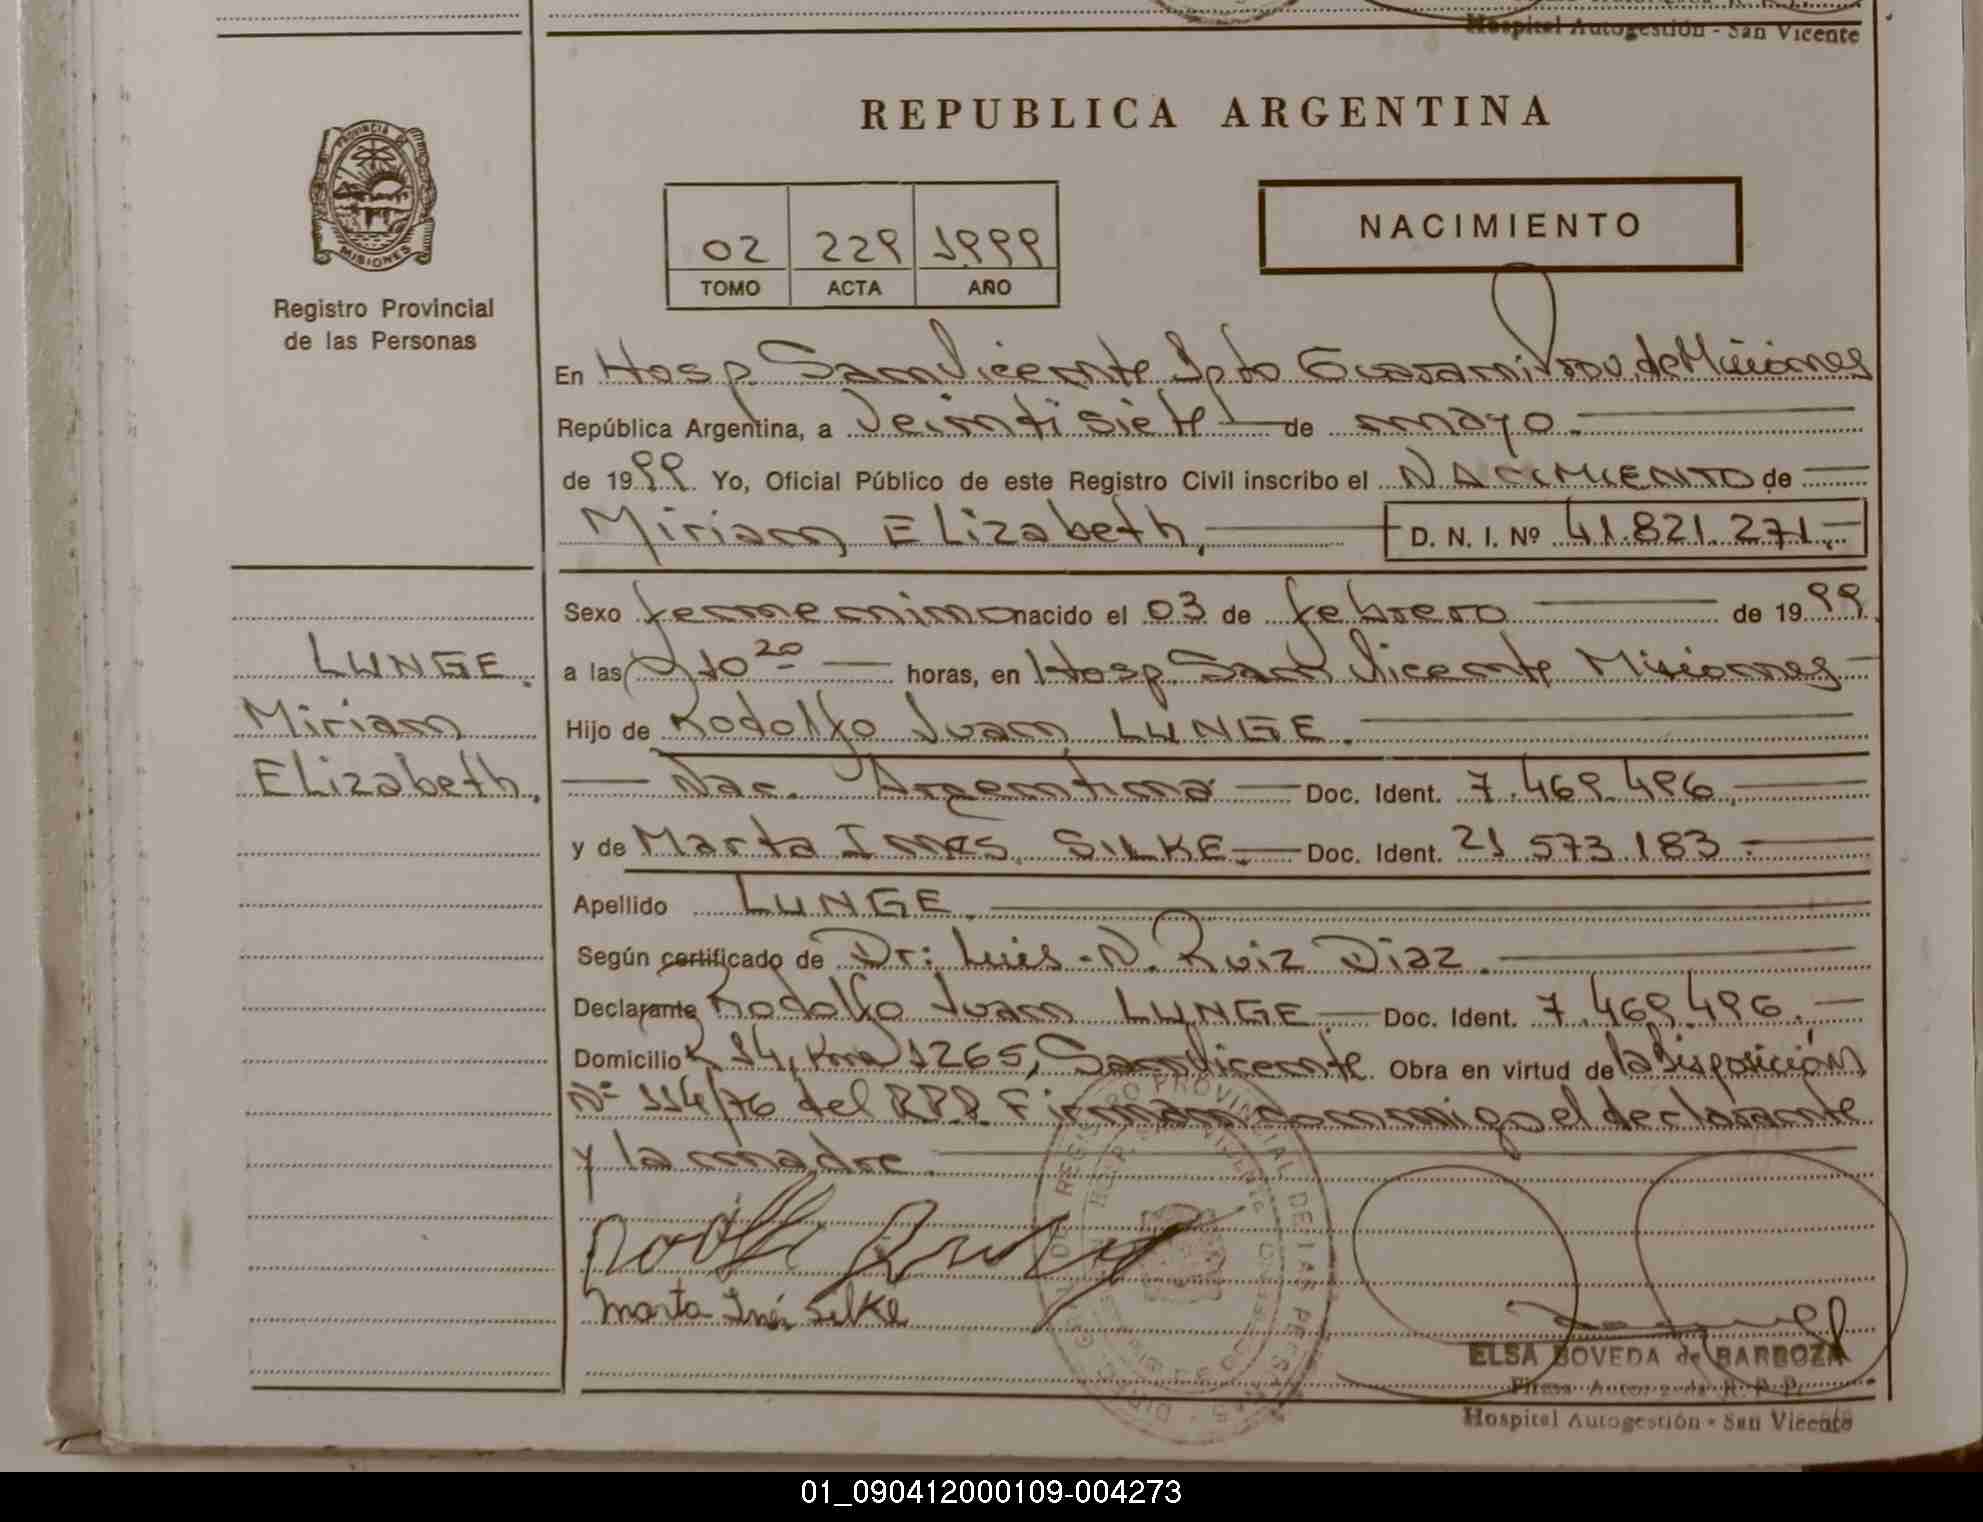 Hospital Autogestión - San Vicente
REPUBLICA ARGENTINA
PROVINCIA DE
MISIONES
Registro Provincial
de las Personas
02 229 1999
TOMO ACTA AÑO
NACIMIENTO
En Hosp. San Vicente Dpto Guarani Prov. de Misiones
República Argentina, a Veintisiete de mayo.
de 1999. Yo, Oficial Público de este Registro Civil inscribo el NACIMIENTO de
Miriam Elizabeth, D. N. I. Nº 41.821.271.-
LUNGE.
Miriam
Elizabeth.
Sexo femenino nacido el 03 de febrero de 1999.
a las 10 20 horas, en Hosp. San Vicente Misiones
Hijo de Rodolfo Juan LUNGE.
Nac. Argentina Doc. Ident. 7.469.496.
y de Marta Ines SILKE. Doc. Ident. 21.573.183.
Apellido LUNGE.
Según certificado de Dr: Luis.N. Ruiz Diaz.
Declarante Rodolfo Juan LUNGE. Doc. Ident. 7.469.496.
Domicilio R 14, Km 1265, San Vicente. Obra en virtud de la Disposición
Nº 114/76 del RPP. Firman conmigo el declarante
y la madre.
Marta Inés Silke
REGISTRO PROVINCIAL DE LAS PERSONAS
ELSA BOVEDA de BARBOZA
Firma Autorizada R. P. P.
Hospital Autogestión - San Vicente
01_090412000109-004273